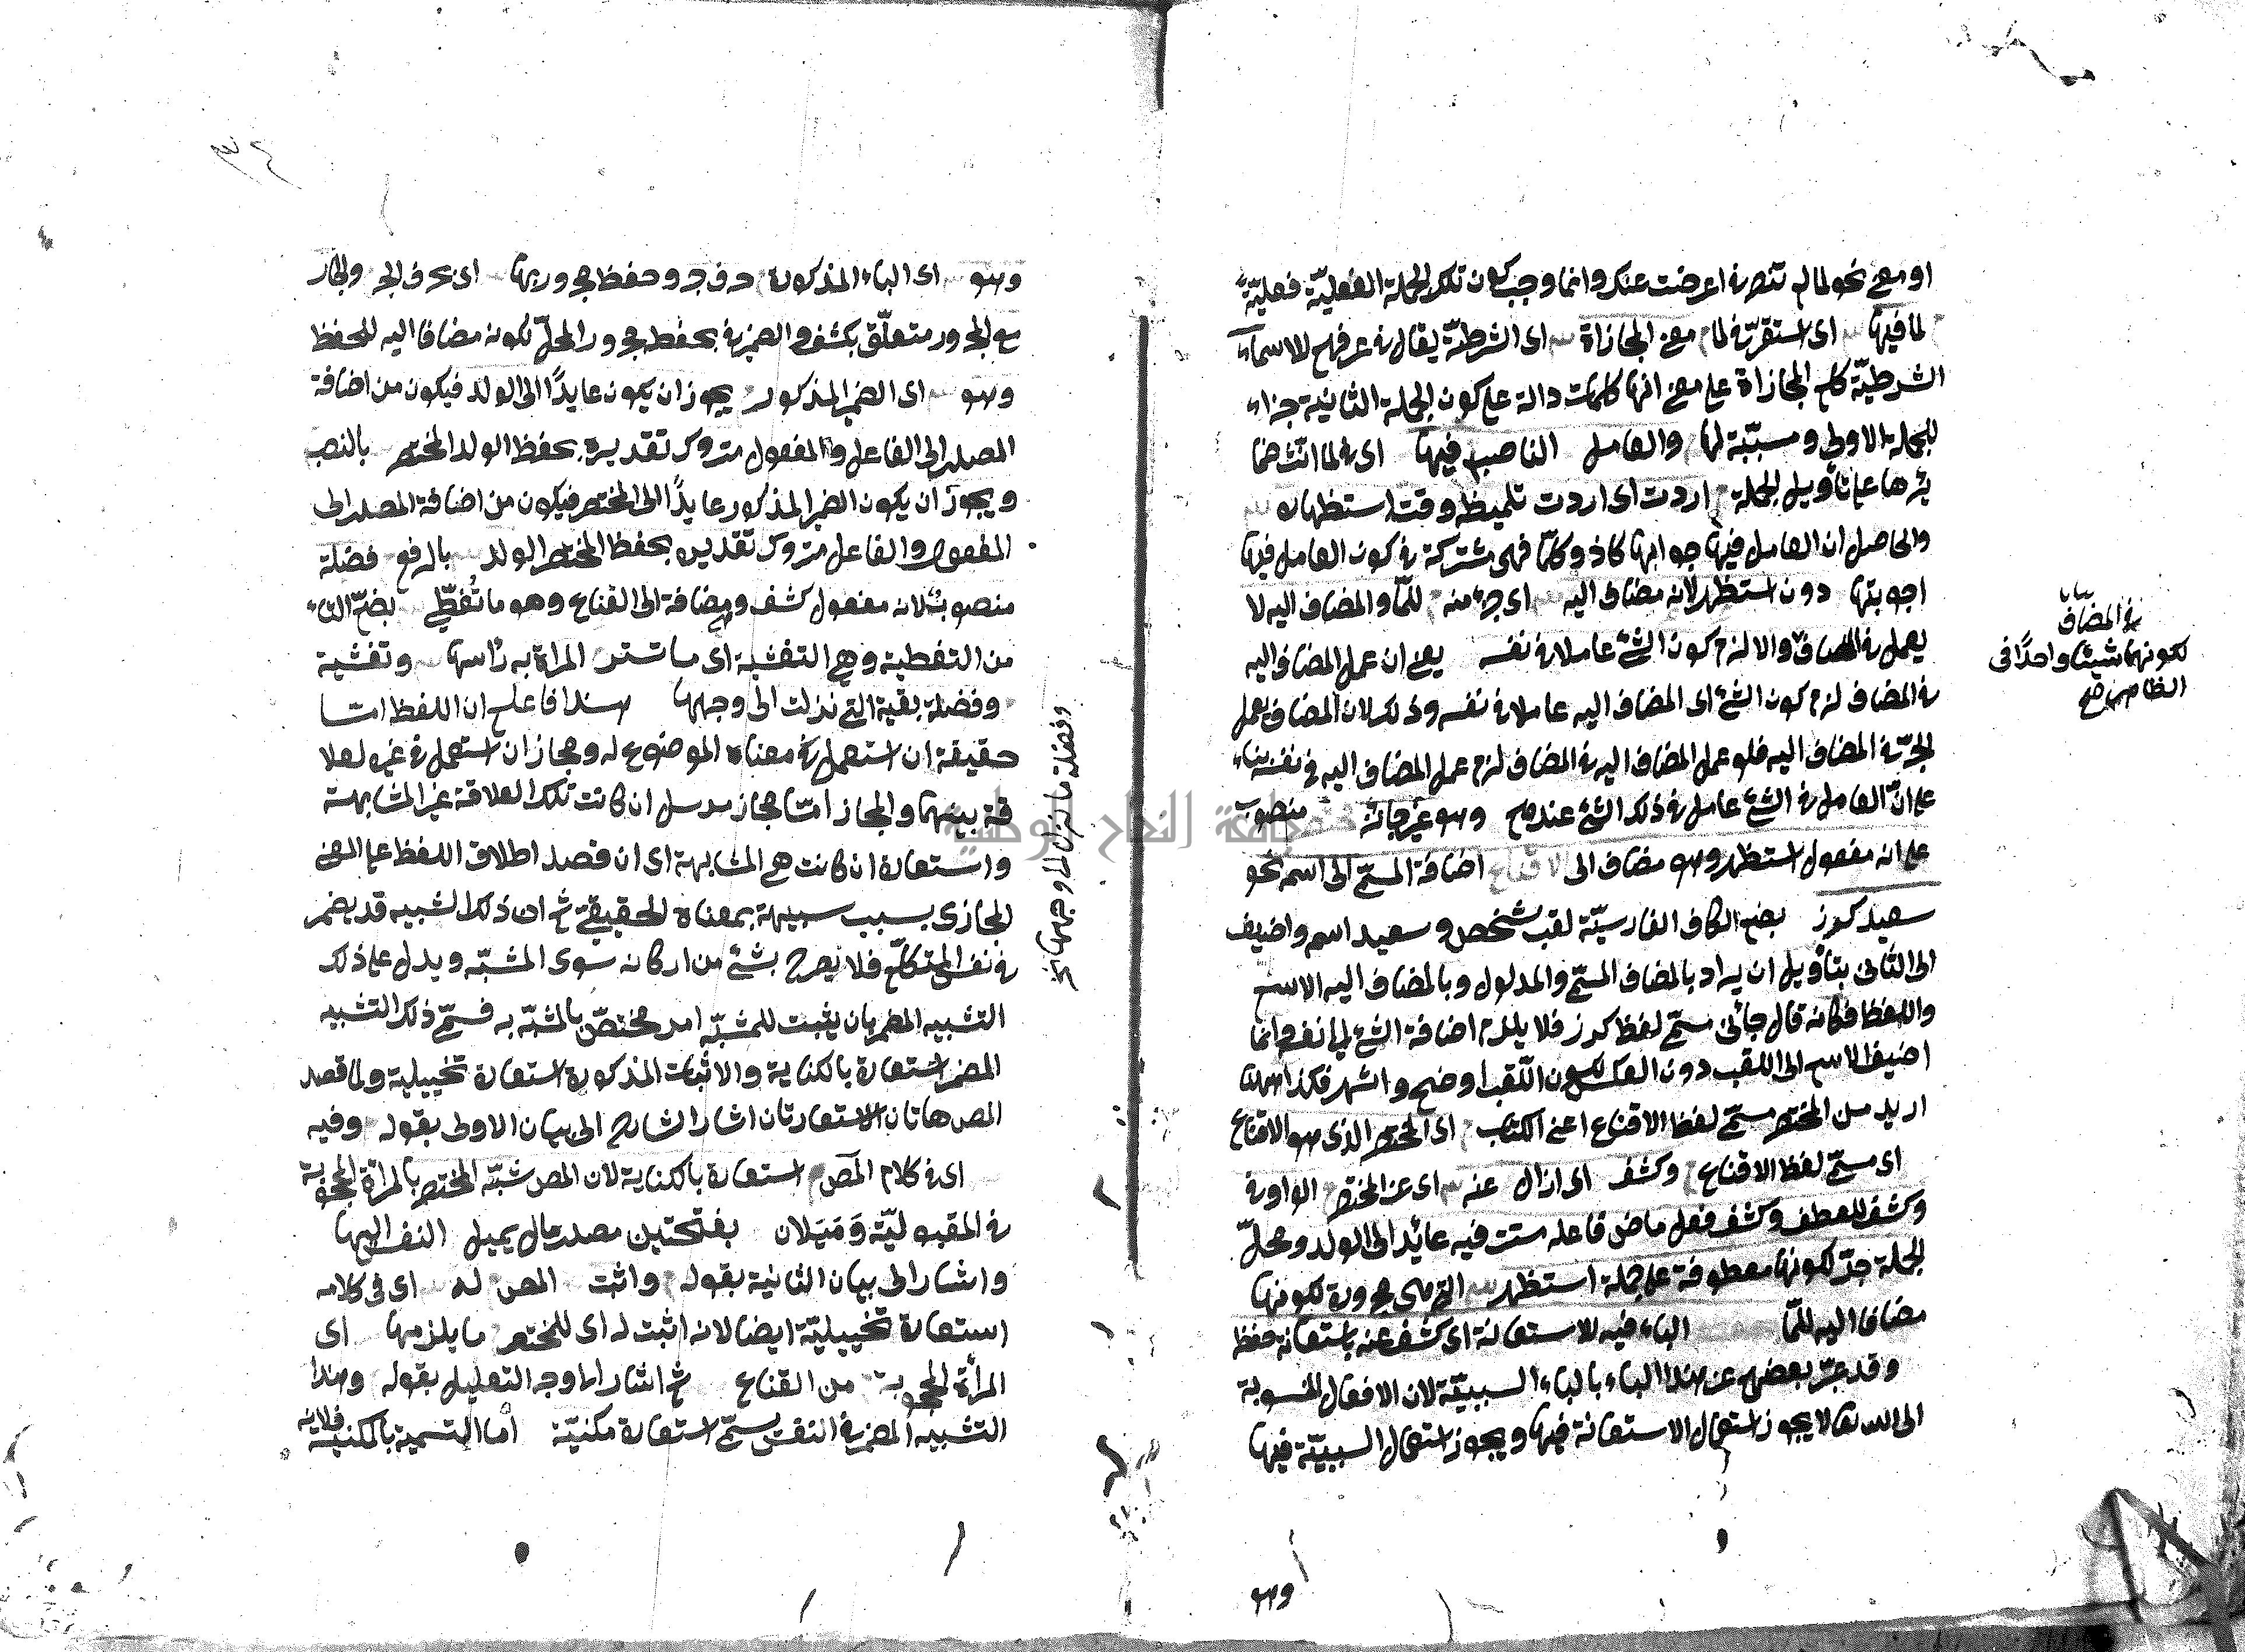 او معنى نحو لما لم تنصرنى اعرضت عنك وانما وجب كون تلك الجملة الفعليّة فعليّة
لما فيها اى استقرّ فى لما معنى المجازاة اى الشرطيّة يقال فى عرفهم للاسماء
الشرطيّة كلم المجازاة على معنى انها كلمات دالة على كون الجملة الثانية جزاء
للجملة الاولى ومسبّبة لها والعامل الناصب فيها اى فى لما انث ضما
ئرها على تأويل الجملة اردت اى اردت تلميظه وقت استظهاره
والحاصل ان العامل فيها جوابها كاذ وكلما فهى مشتركة فى كون العامل فيها
اجوبتها دون استظهر لانه مضاف اليه اى جزء منه للمّا والمضاف اليه لا
يعمل فى المضاف والا لزم كون الشئ عاملا فى نفسه يعنى ان عمل المضاف اليه
فى المضاف لزم كون الشئ اى المضاف اليه عاملا فى نفسه وذلك لان المضاف يعمل
الجرّ فى المضاف اليه فلو عمل المضاف اليه فى المضاف لزم عمل المضاف اليه فى نفسه بناء
على ان العامل فى الشئ عامل فى ذلك الشئ عندهم وهو غير جائز منصوب
على انه مفعول استظهر وهو مضاف الى الاقناع اضافة المسمّى الى اسمه نحو
سعيد كرز بضم الكاف الفارسيّة لقب شخص وسعيد اسم واضيف
الى الثانى بتأويل ان يراد بالمضاف المسمّى والمدلول وبالمضاف اليه الاسم
واللفظ فكانه قال جائنى مسمّى لفظ كرز فلا يلزم اضافة الشئ الى نفسه وانما
اضيف الاسم الى اللقب دون العكس لكون اللّقب اوضح واشهر فكذا ههنا
اريد من المختصر مسمّى لفظ الاقناع اعنى الكتاب اى المختصر الذى هو الاقناع
اى مسمّى لفظ الاقناع وكشف اى ازال عنه اى عن المختصر الواو فى
وكشف للعطف وكشف فعل ماض فاعله مستتر فيه عائد الى الولد ومحلّ
الجملة جرّ لكونها معطوفة على جملة استظهر التى هى مجرورة لكونها
مضافا اليه للمّا الباء فيه للاستعانة اى كشف عنه باستعانة حفظه
وقد عبّر بعضهم عن هذا الباء بالباء السببيّة لان الافعال المنسوبة
الى الله تعالى لا يجوز استعمال الاستعانة فيها ويجوز استعمال السببيّة فيها
وهو
فى المضاف
لكونهما شيئا واحدًا فى
الظاهر
٣٤
وهو اى الباء المذكورة حرف جر وحفظ مجرور بها اى بحرف الجر والجار
مع المجرور متعلّق بكشف والضمير فى بحفظه مجرور المحلّ لكونه مضافا اليه للحفظ
وهو اى الضمير المذكور يجوز ان يكون عايدًا الى الولد فيكون من اضافة
المصدر الى الفاعل والمفعول متروك تقديره بحفظ الولد المختصر بالنصب
ويجوز ان يكون الضمير المذكور عايدًا الى المختصر فيكون من اضافة المصدر الى
المفعول والفاعل متروك تقديره بحفظ المختصر الولد بالرفع فضلة
منصوب لانه مفعول كشف ومضافة الى القناع وهو ما تُغطّى بضمّ التاء
من التغطية وهى التغشية اى ما تستر المراة به رأسها وتغشية
وفضلة بقية التى نزلت الى وجهها هذا فاعلم ان اللفظ امّا
حقيقة ان استعمل فى معناه الموضوع له ومجاز ان استعمل فى غيره لعلا
قة بينهما والمجاز امّا مجاز مرسل ان كانت تلك العلاقة غير المشابهة
واستعارة ان كانت هى المشابهة اى ان قصد اطلاق اللفظ على المعنى
المجازى بسبب شبهه بمعناه الحقيقى ثم ان ذلك التشبيه قد يضمر
فى نفس المتكلّم فلا يصرح بشئ من اركانه سوى المشبّه ويدل على ذلك
التشبيه المضمر بان يثبت للمشبّه امر مختصّ بالمشبّه به فسمّى ذلك التشبيه
المضمر استعارة بالكناية والاثبات المذكورة استعارة تخييلية ولما قصد
المص هاتان الاستعارتان اشار الشارح الى بيان الاولى بقوله وفيه
اى فى كلام المص استعارة بالكناية لان المص شبّه المختصر بالمرأة المحجوبة
فى المقبوليّة وَمَيَلان بفتحتين مصدر مال يميل النفس اليها
واشار الى بيان الثانية بقوله واثبت المص له اى فى كلامه
استعارة تخييليّة ايضا لانه اثبت له اى للمختصر ما يلزمها اى
المرأة المحجوبة من القناع ثم اشار الى وجه التعليل بقوله وهذا
التشبيه المضمر فى النفس يسمّى استعارة مكنيّة اما التسمية بالمكنية فلانه
وفضلة ما نزل الى وجهها